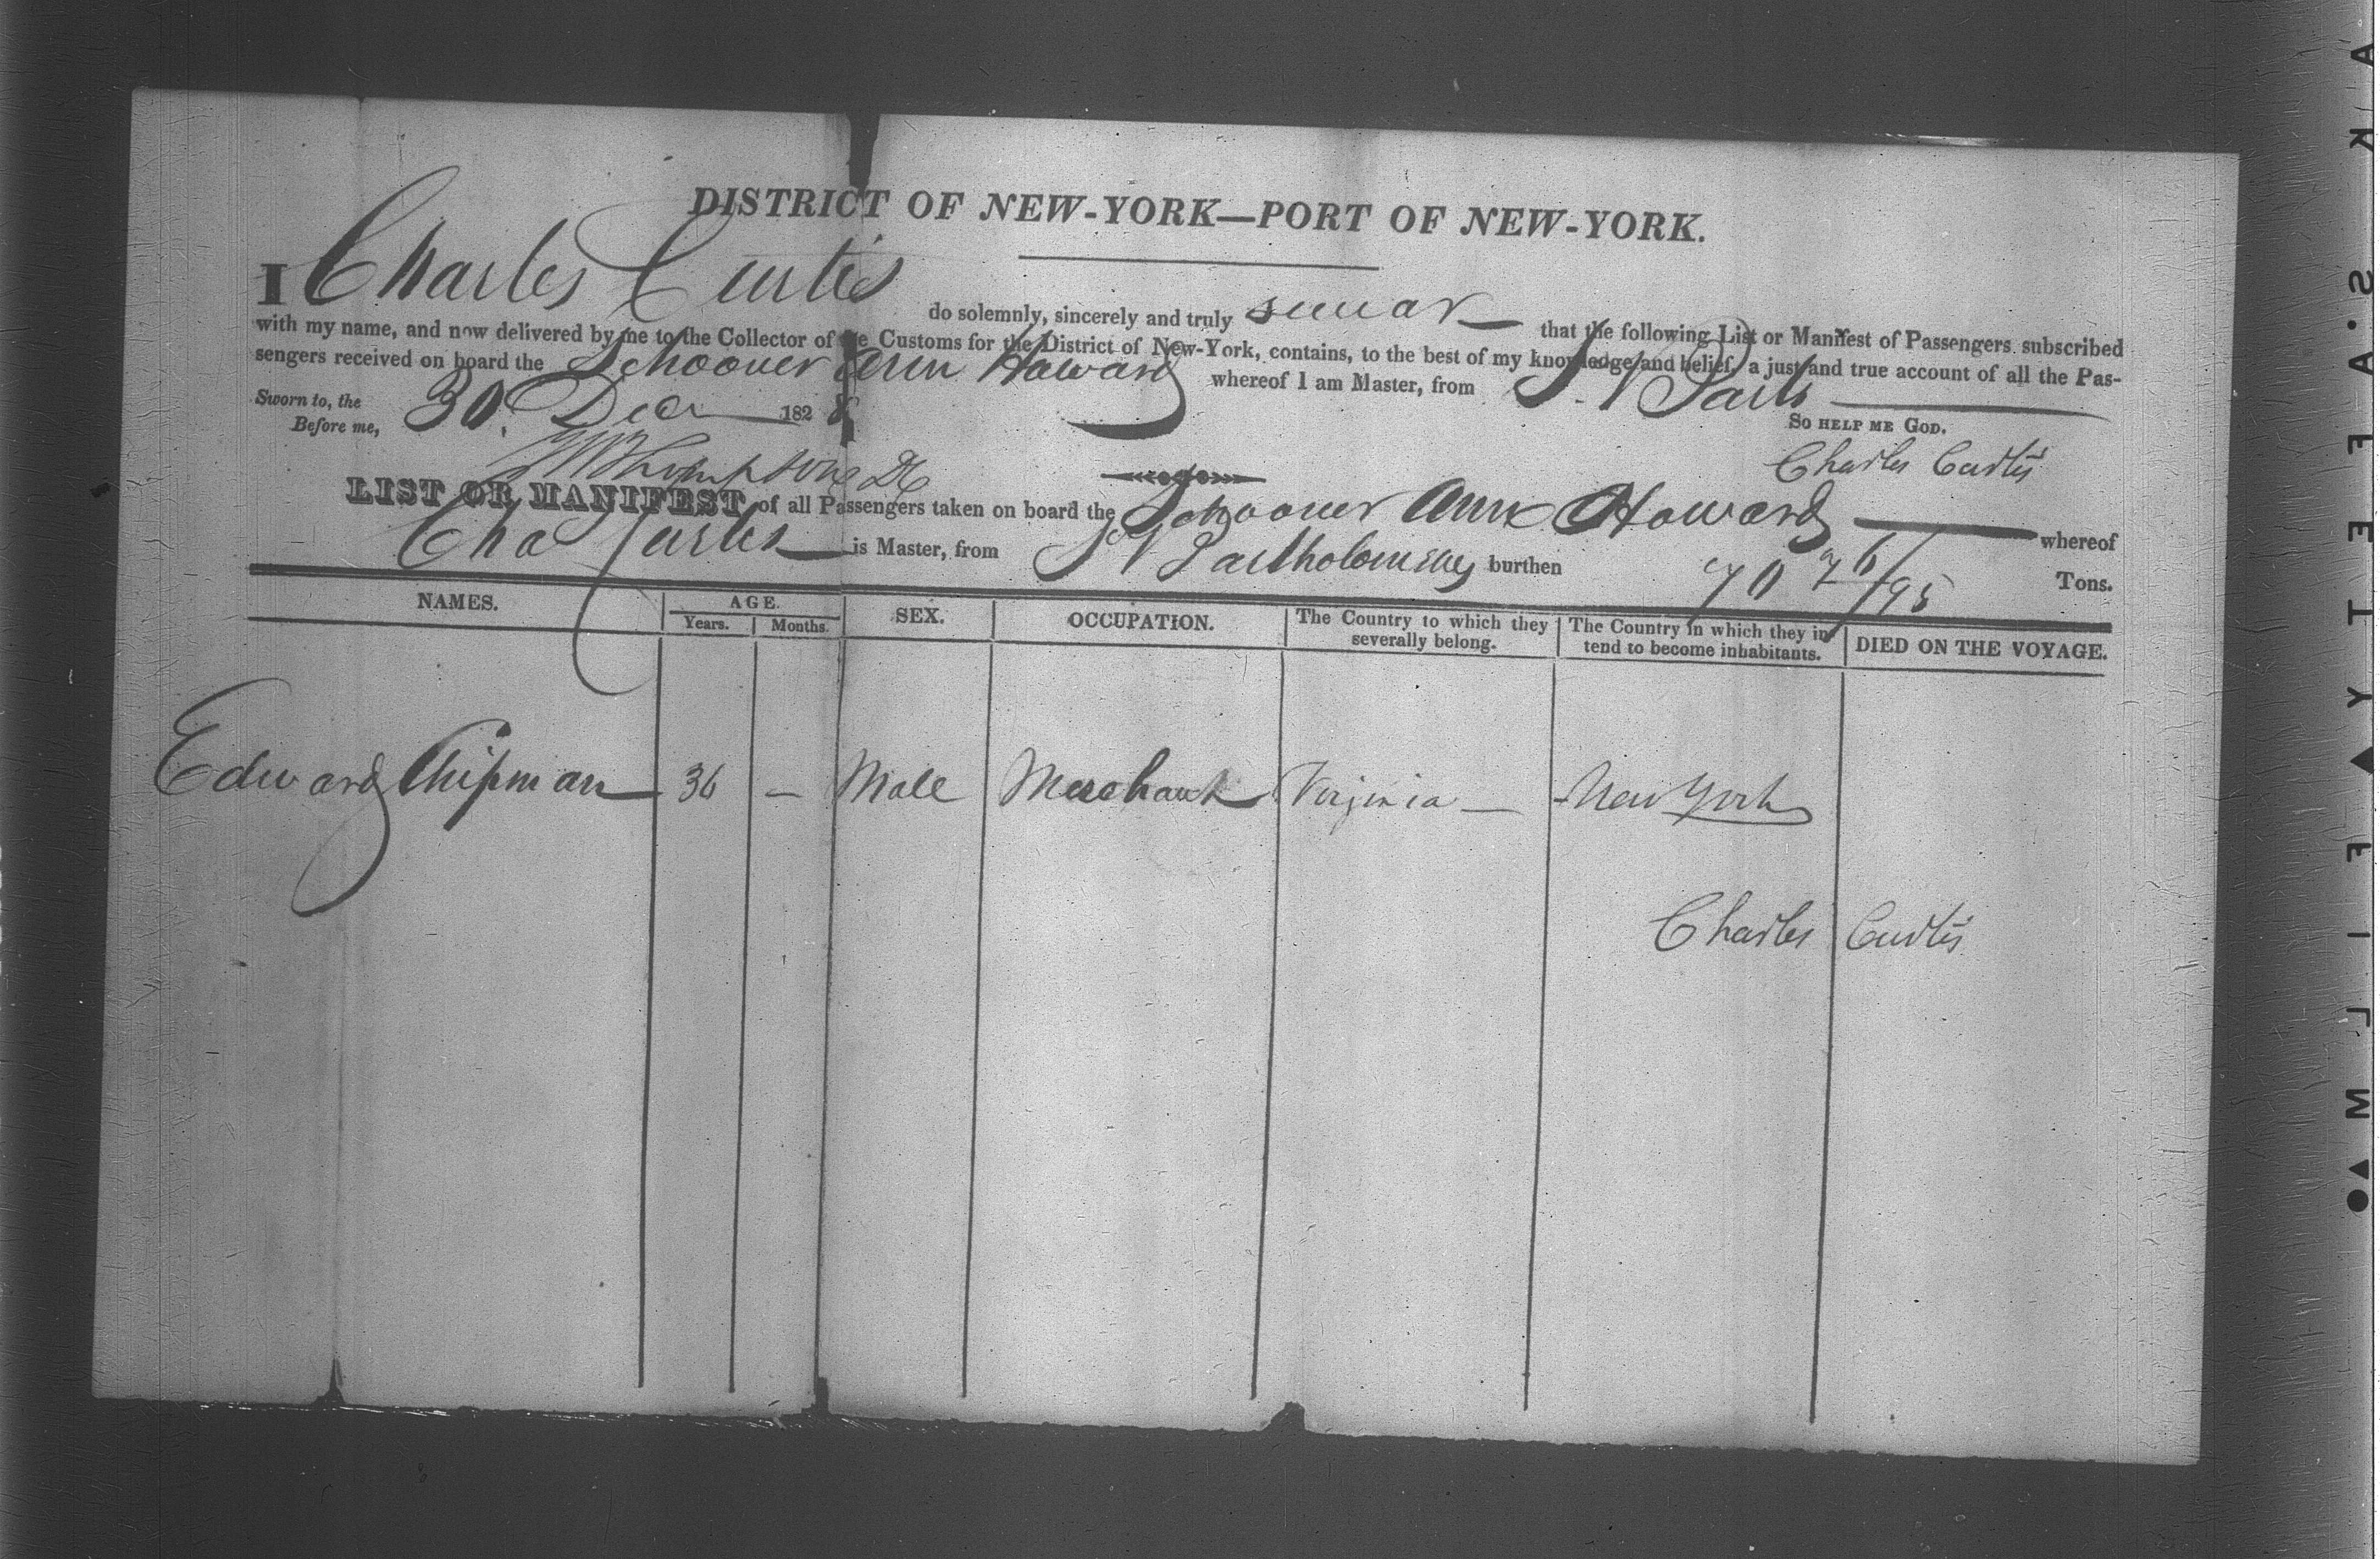 DISTRICT OF NEW-YORK—PORT OF NEW-YORK.
I Charles Curtis do solemnly, sincerely and truly swear that the following List or Manifest of Passengers subscribed
with my name, and now delivered by me to the Collector of the Customs for the District of New-York, contains, to the best of my knowledge and belief, a just and true account of all the Pas-
sengers received on board the Schooner Ann Howard whereof I am Master, from St Barts
Sworn to, the 30 Decr 1828
So HELP ME GOD.
Before me,
Charles Curtis
Thompson
LIST OR MANIFEST of all Passengers taken on board the Schooner Ann Howard whereof
Cha Curtis is Master, from St Bartholomews burthen 70 26/95 Tons.
NAMES. AGE. Years. Months. SEX. OCCUPATION. The Country to which they severally belong. The Country in which they intend to become inhabitants. DIED ON THE VOYAGE.
Edward Chipman 36 — Male Merchant Virginia — New York
Charles Curtis
SAFETY